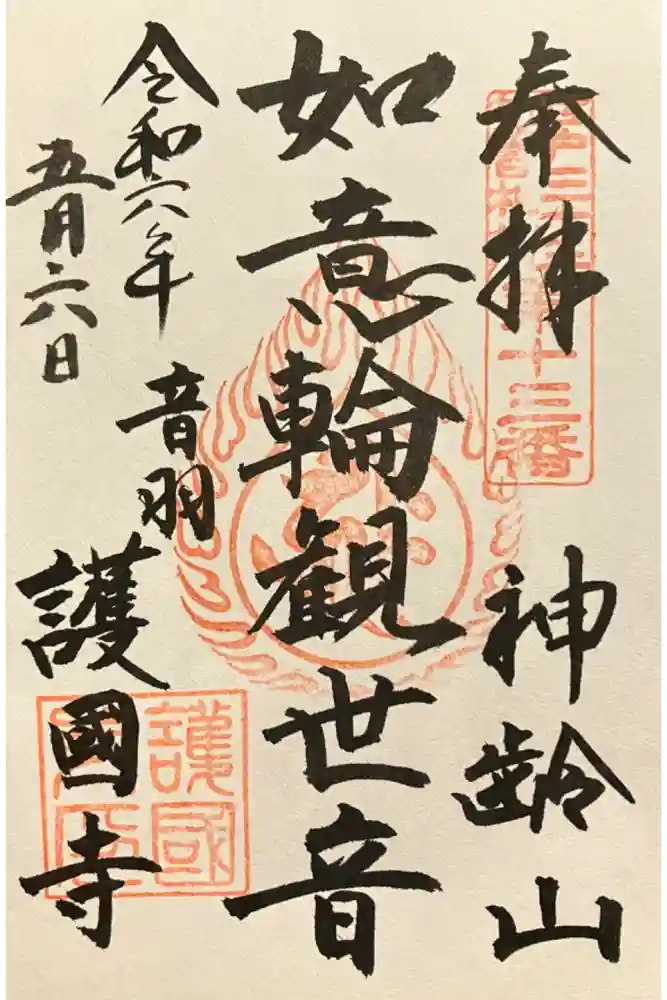 奉拝
神齢山
如意輪観世音
令和六年
五月六日
音羽
護國寺
護國